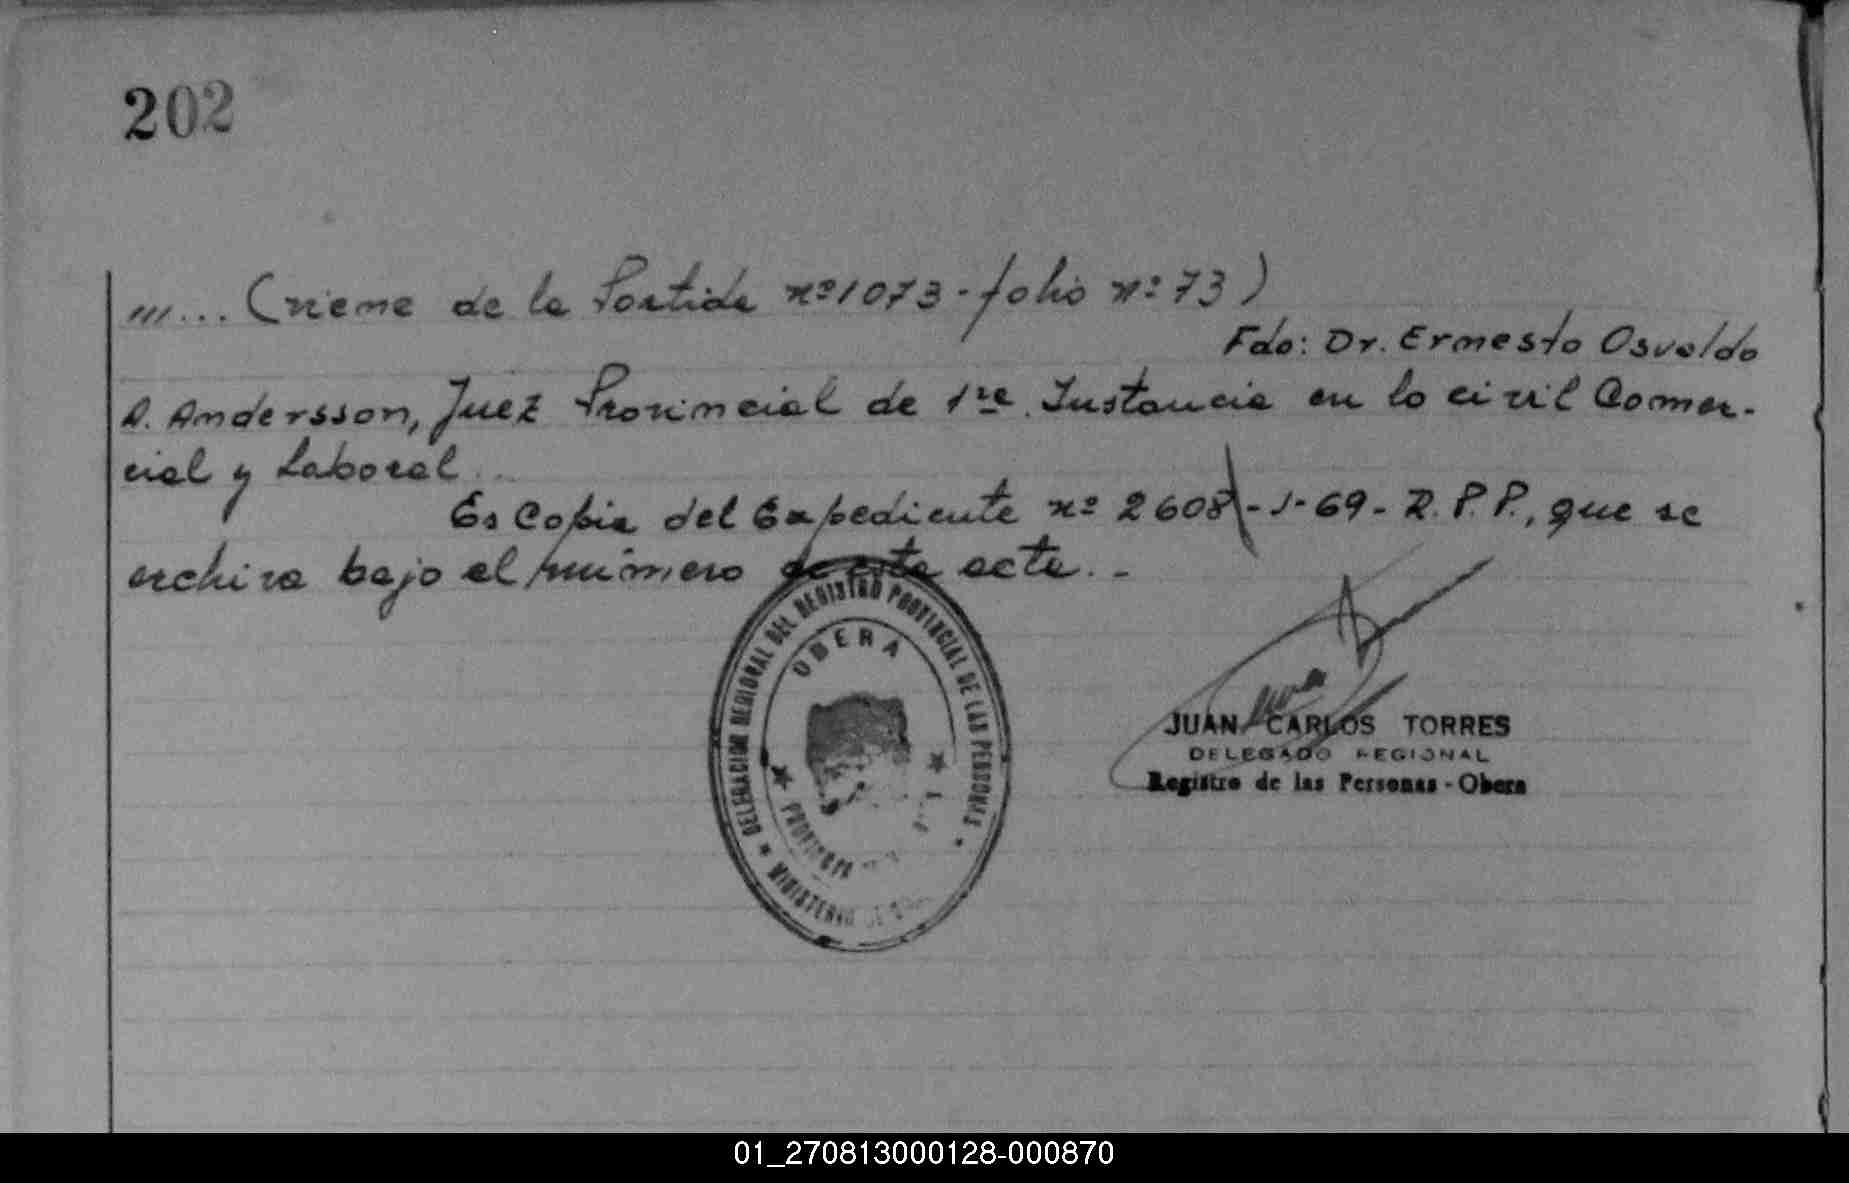 202
///... (viene de la Partida nº 1073 - folio nº 73)
Fdo: Dr. Ernesto Osvaldo
A. Andersson, Juez Provincial de 1ra. Instancia en lo civil Comer-
cial y Laboral.
Es Copia del Expediente nº 2608 - J - 69 - R.P.P., que se
archiva bajo el número de esta acta. -
DELEGACION REGIONAL DEL REGISTRO PROVINCIAL DE LAS PERSONAS
OBERA
PROVINCIA
MINISTERIO DE
JUAN CARLOS TORRES
DELEGADO REGIONAL
Registro de las Personas - Obera
01_270813000128-000870